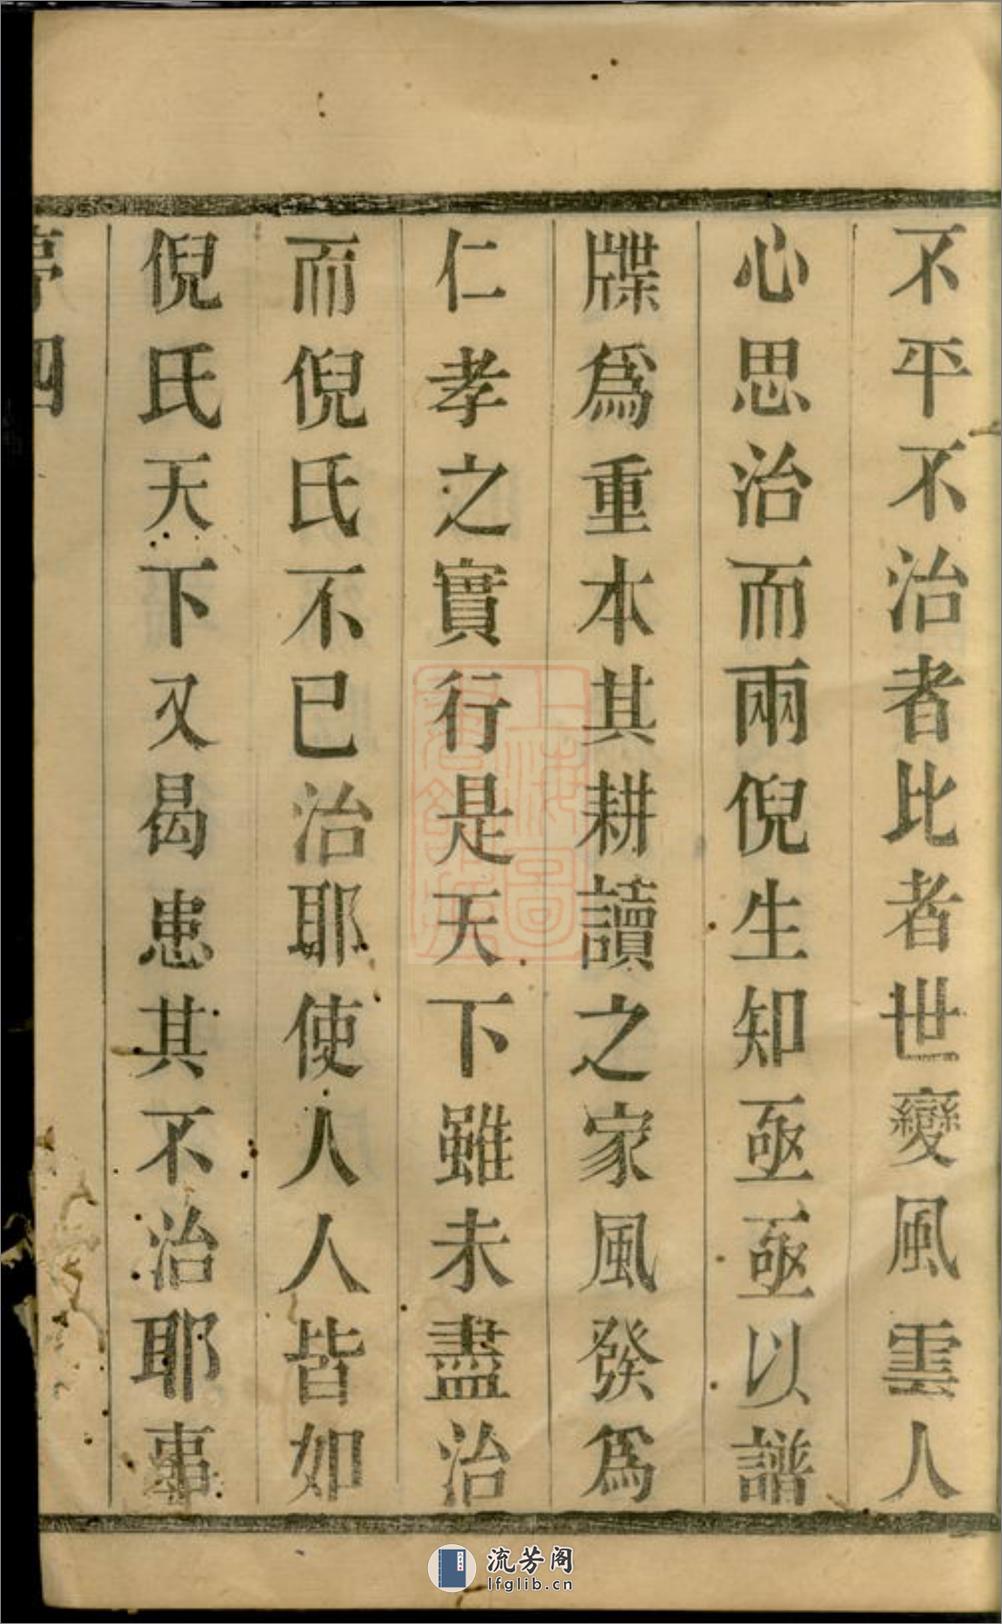 不平不治者比者世變風雲人
心思治而兩倪生知亟亟以譜
牒爲重本其耕讀之家風發爲
仁孝之實行是天下雖未盡治
而倪氏不已治耶使人人皆如
倪氏天下又曷患其不治耶事
四
流芳阁
lfglib.cn